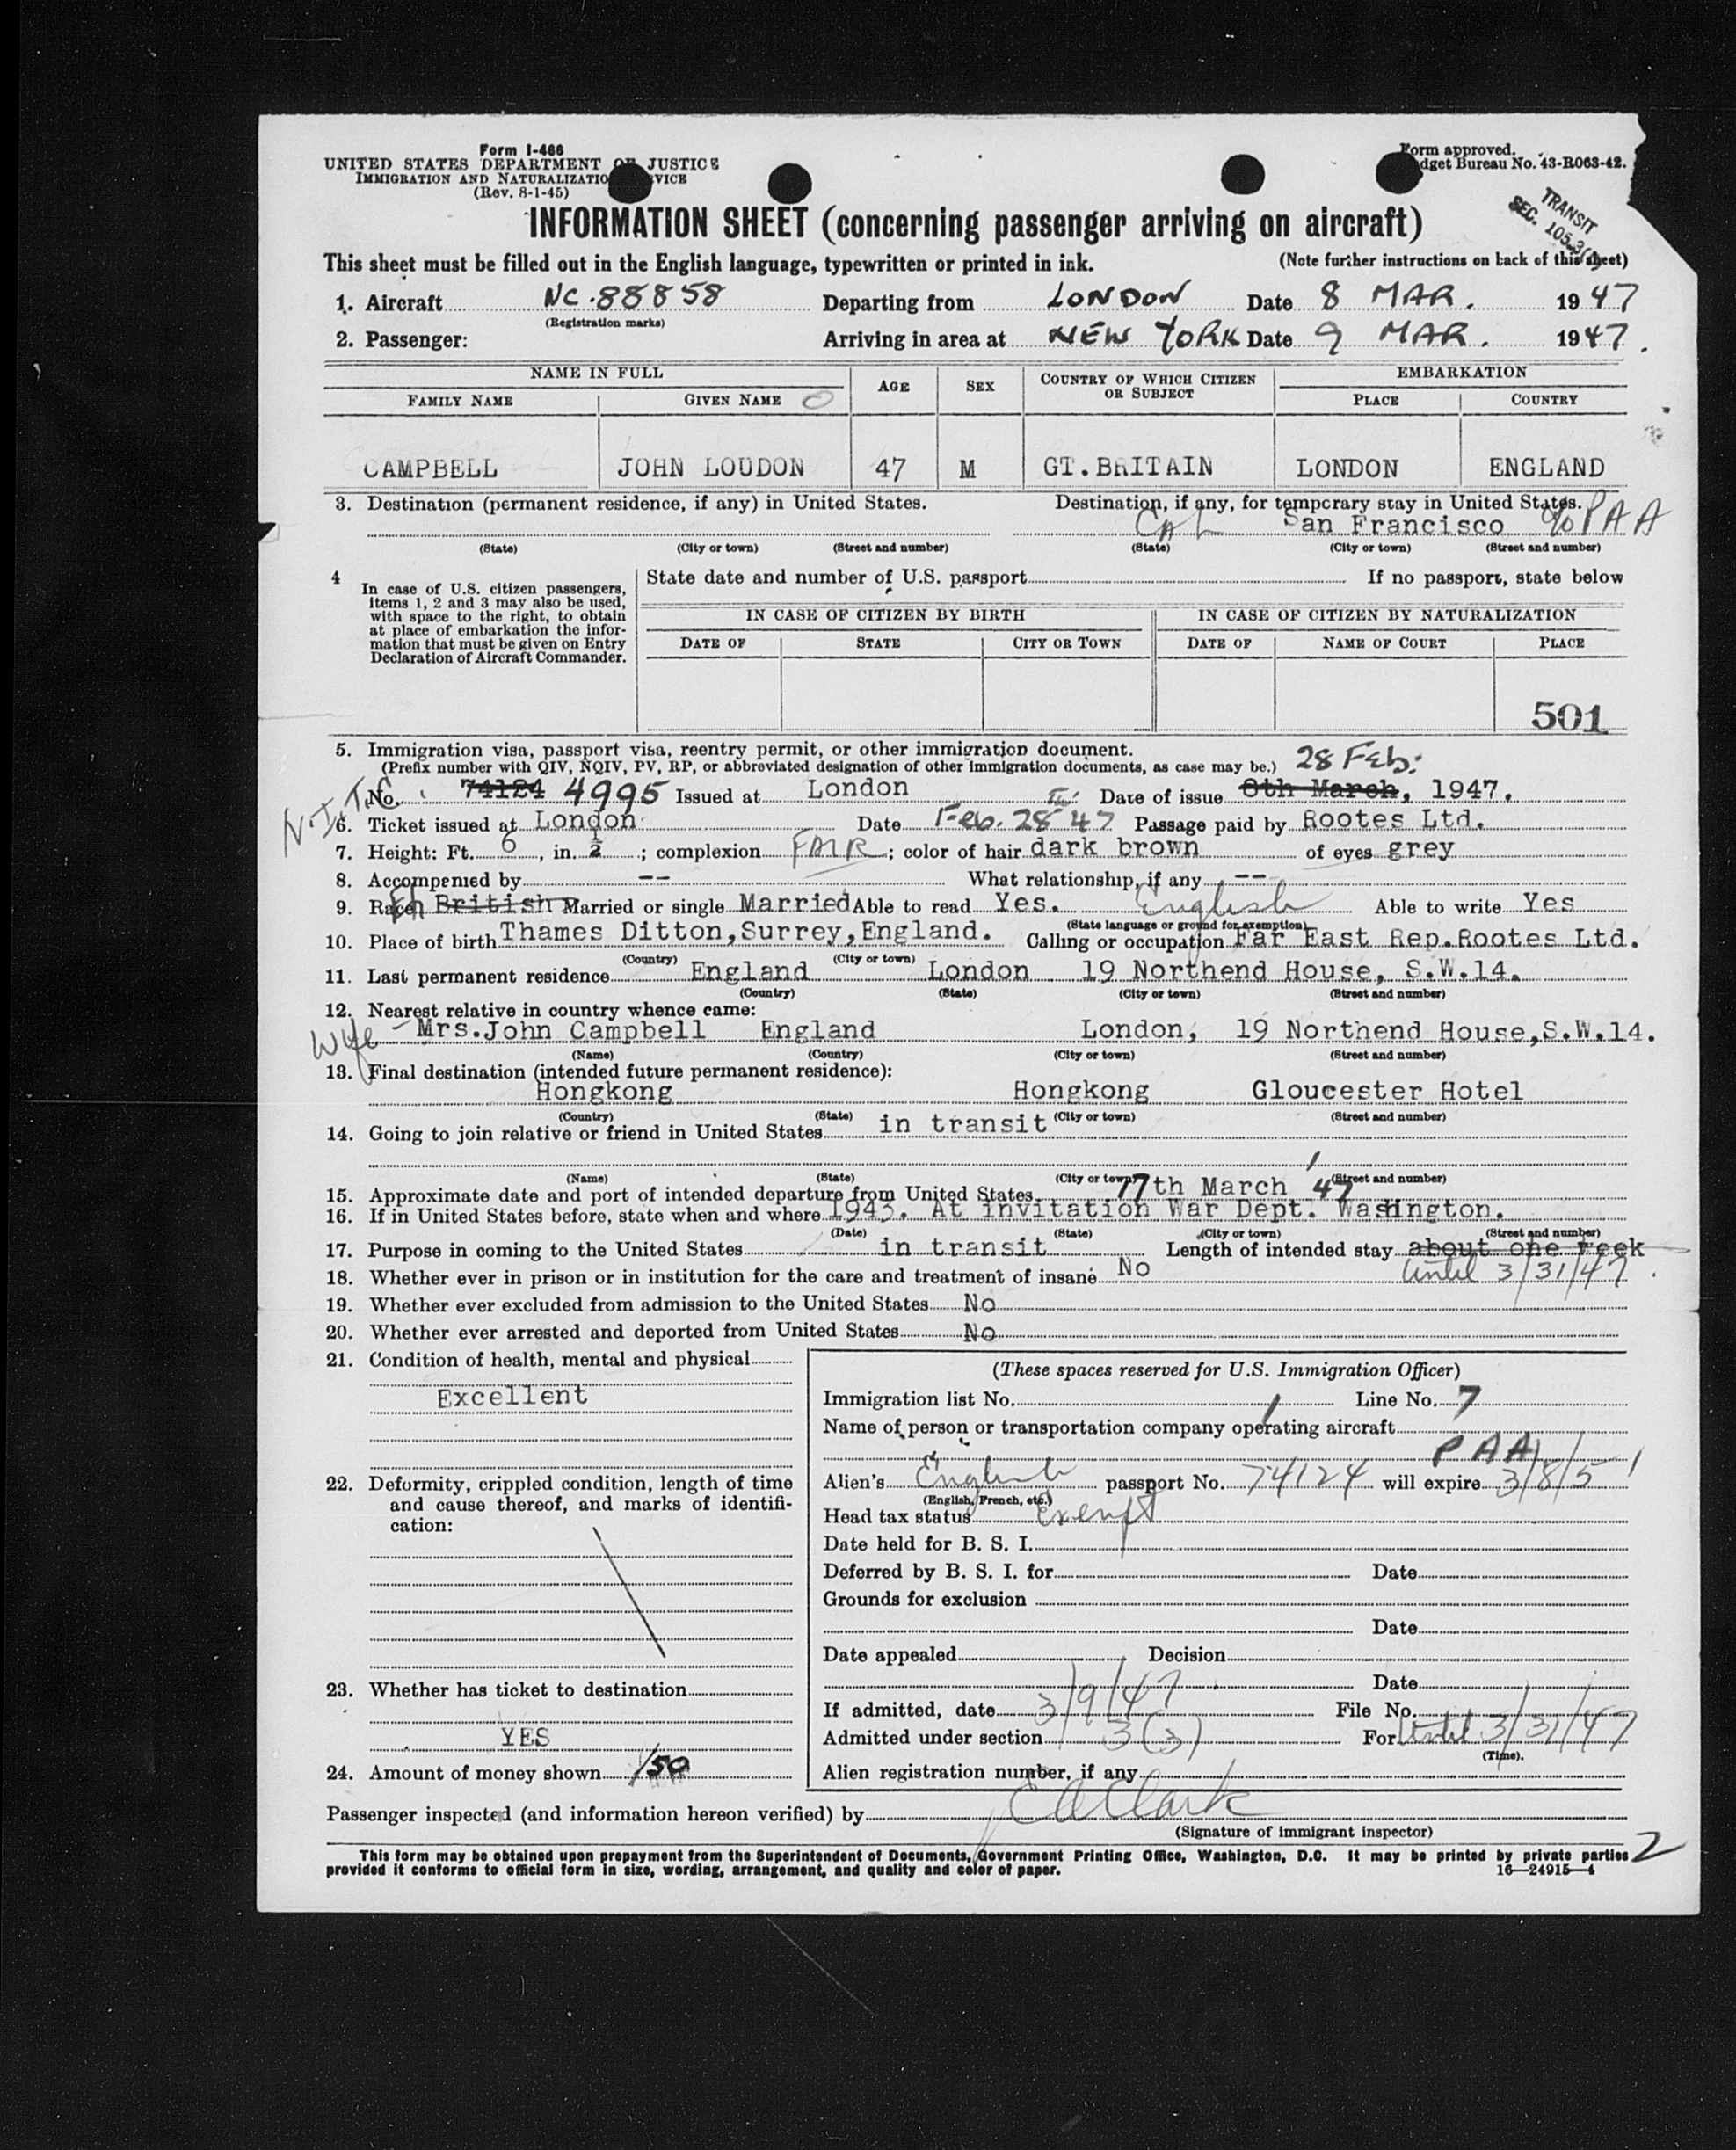 Form I-466
UNITED STATES DEPARTMENT OF JUSTICE
IMMIGRATION AND NATURALIZATIO VICE
(Rev. 8-1-45)
Form approved.
dget Bureau No. 43-R063-42.
TRANSIT
SEC. 105.3(
INFORMATION SHEET (concerning passenger arriving on aircraft)
This sheet must be filled out in the English language, typewritten or printed in ink. (Note further instructions on back of this sheet)
1. Aircraft NC.88858 Departing from LONDON Date 8 MAR. 1947
(Registration marks)
2. Passenger: Arriving in area at NEW YORK Date 9 MAR. 1947.
NAME IN FULL AGE SEX COUNTRY OF WHICH CITIZEN OR SUBJECT EMBARKATION
FAMILY NAME GIVEN NAME PLACE COUNTRY
CAMPBELL JOHN LOUDON 47 M GT.BRITAIN LONDON ENGLAND
3. Destination (permanent residence, if any) in United States. Destination, if any, for temporary stay in United States.
CAL San Francisco % PAA
(State) (City or town) (Street and number) (State) (City or town) (Street and number)
4 In case of U.S. citizen passengers, items 1, 2 and 3 may also be used, with space to the right, to obtain at place of embarkation the information that must be given on Entry Declaration of Aircraft Commander.
State date and number of U.S. passport If no passport, state below
IN CASE OF CITIZEN BY BIRTH IN CASE OF CITIZEN BY NATURALIZATION
DATE OF STATE CITY OR TOWN DATE OF NAME OF COURT PLACE
501
5. Immigration visa, passport visa, reentry permit, or other immigration document.
(Prefix number with QIV, NQIV, PV, RP, or abbreviated designation of other immigration documents, as case may be.) 28 Feb:
N.I.T.C. No. 74124 4995 Issued at London Date of issue 8th March, 1947.
6. Ticket issued at London Date Feb. 28 47 Passage paid by Rootes Ltd.
7. Height: Ft. 6, in. ½; complexion FAIR; color of hair dark brown of eyes grey
8. Accompenied by -- What relationship, if any --
9. Race Eh British Married or single Married Able to read Yes. English Able to write Yes
(State language or ground for exemption)
10. Place of birth Thames Ditton,Surrey,England. Calling or occupation Far East Rep.Rootes Ltd.
(Country) (City or town)
11. Last permanent residence England London 19 Northend House, S.W.14.
(Country) (State) (City or town) (Street and number)
12. Nearest relative in country whence came:
Wife - Mrs.John Campbell England London, 19 Northend House,S.W.14.
(Name) (Country) (City or town) (Street and number)
13. Final destination (intended future permanent residence):
Hongkong Hongkong Gloucester Hotel
(Country) (State) (City or town) (Street and number)
14. Going to join relative or friend in United States in transit
(Name) (State) (City or town) (Street and number)
15. Approximate date and port of intended departure from United States. 17th March '47
16. If in United States before, state when and where 1943. At invitation War Dept. Washington.
(Date) (State) (City or town) (Street and number)
17. Purpose in coming to the United States in transit Length of intended stay about one week
18. Whether ever in prison or in institution for the care and treatment of insane No until 3/31/47
19. Whether ever excluded from admission to the United States No
20. Whether ever arrested and deported from United States No
21. Condition of health, mental and physical
Excellent
22. Deformity, crippled condition, length of time and cause thereof, and marks of identification:
23. Whether has ticket to destination
YES
24. Amount of money shown 150
(These spaces reserved for U.S. Immigration Officer)
Immigration list No. 1 Line No. 7
Name of person or transportation company operating aircraft
PAA
Alien's English passport No. 74124 will expire 3/8/51
(English, French, etc.)
Head tax status Exempt
Date held for B. S. I.
Deferred by B. S. I. for Date
Grounds for exclusion
Date
Date appealed Decision
Date
If admitted, date 3/9/47 File No.
Admitted under section 3(3) For Until 3/31/47
(Time).
Alien registration number, if any
Passenger inspected (and information hereon verified) by E A Clark
(Signature of immigrant inspector)
This form may be obtained upon prepayment from the Superintendent of Documents, Government Printing Office, Washington, D.C. It may be printed by private parties
provided it conforms to official form in size, wording, arrangement, and quality and color of paper. 16—24915-4
2